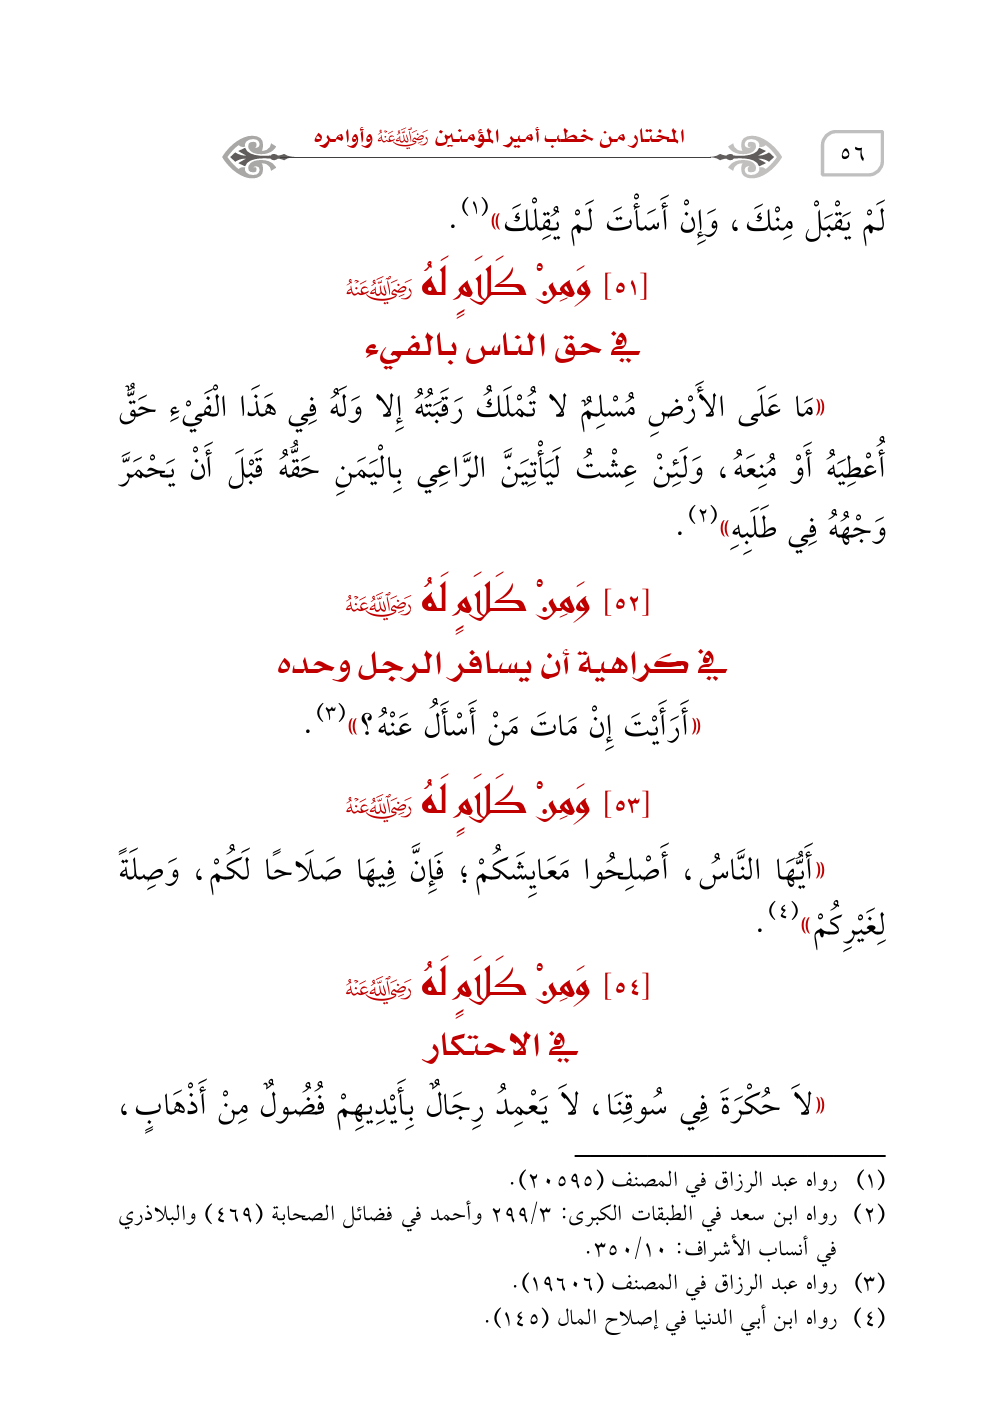 ٥٦
المختار من خطب أمير المؤمنين رَضِيَ اللَّهُ عَنْهُ وأوامره
لَمْ يَقْبَلْ مِنْكَ، وَإِنْ أَسَأْتَ لَمْ يُقِلْكَ»(١).
[٥١] وَمِنْ كَلَامٍ لَهُ رَضِيَ اللَّهُ عَنْهُ
في حق الناس بالفيء
«مَا عَلَى الأَرْضِ مُسْلِمٌ لا تُمْلَكُ رَقَبَتُهُ إِلا وَلَهُ فِي هَذَا الْفَيْءِ حَقٌّ
أُعْطِيَهُ أَوْ مُنِعَهُ، وَلَئِنْ عِشْتُ لَيَأْتِيَنَّ الرَّاعِي بِالْيَمَنِ حَقُّهُ قَبْلَ أَنْ يَحْمَرَّ
وَجْهُهُ فِي طَلَبِهِ»(٢).
[٥٢] وَمِنْ كَلَامٍ لَهُ رَضِيَ اللَّهُ عَنْهُ
في كراهية أن يسافر الرجل وحده
«أَرَأَيْتَ إِنْ مَاتَ مَنْ أَسْأَلُ عَنْهُ؟»(٣).
[٥٣] وَمِنْ كَلَامٍ لَهُ رَضِيَ اللَّهُ عَنْهُ
«أَيُّهَا النَّاسُ، أَصْلِحُوا مَعَايِشَكُمْ؛ فَإِنَّ فِيهَا صَلَاحًا لَكُمْ، وَصِلَةً
لِغَيْرِكُمْ»(٤).
[٥٤] وَمِنْ كَلَامٍ لَهُ رَضِيَ اللَّهُ عَنْهُ
في الاحتكار
«لاَ حُكْرَةَ فِي سُوقِنَا، لاَ يَعْمِدُ رِجَالٌ بِأَيْدِيهِمْ فُضُولٌ مِنْ أَذْهَابٍ،
(١) رواه عبد الرزاق في المصنف (٢٠٥٩٥).
(٢) رواه ابن سعد في الطبقات الكبرى: ٢٩٩/٣ وأحمد في فضائل الصحابة (٤٦٩) والبلاذري
في أنساب الأشراف: ٣٥٠/١٠.
(٣) رواه عبد الرزاق في المصنف (١٩٦٠٦).
(٤) رواه ابن أبي الدنيا في إصلاح المال (١٤٥).